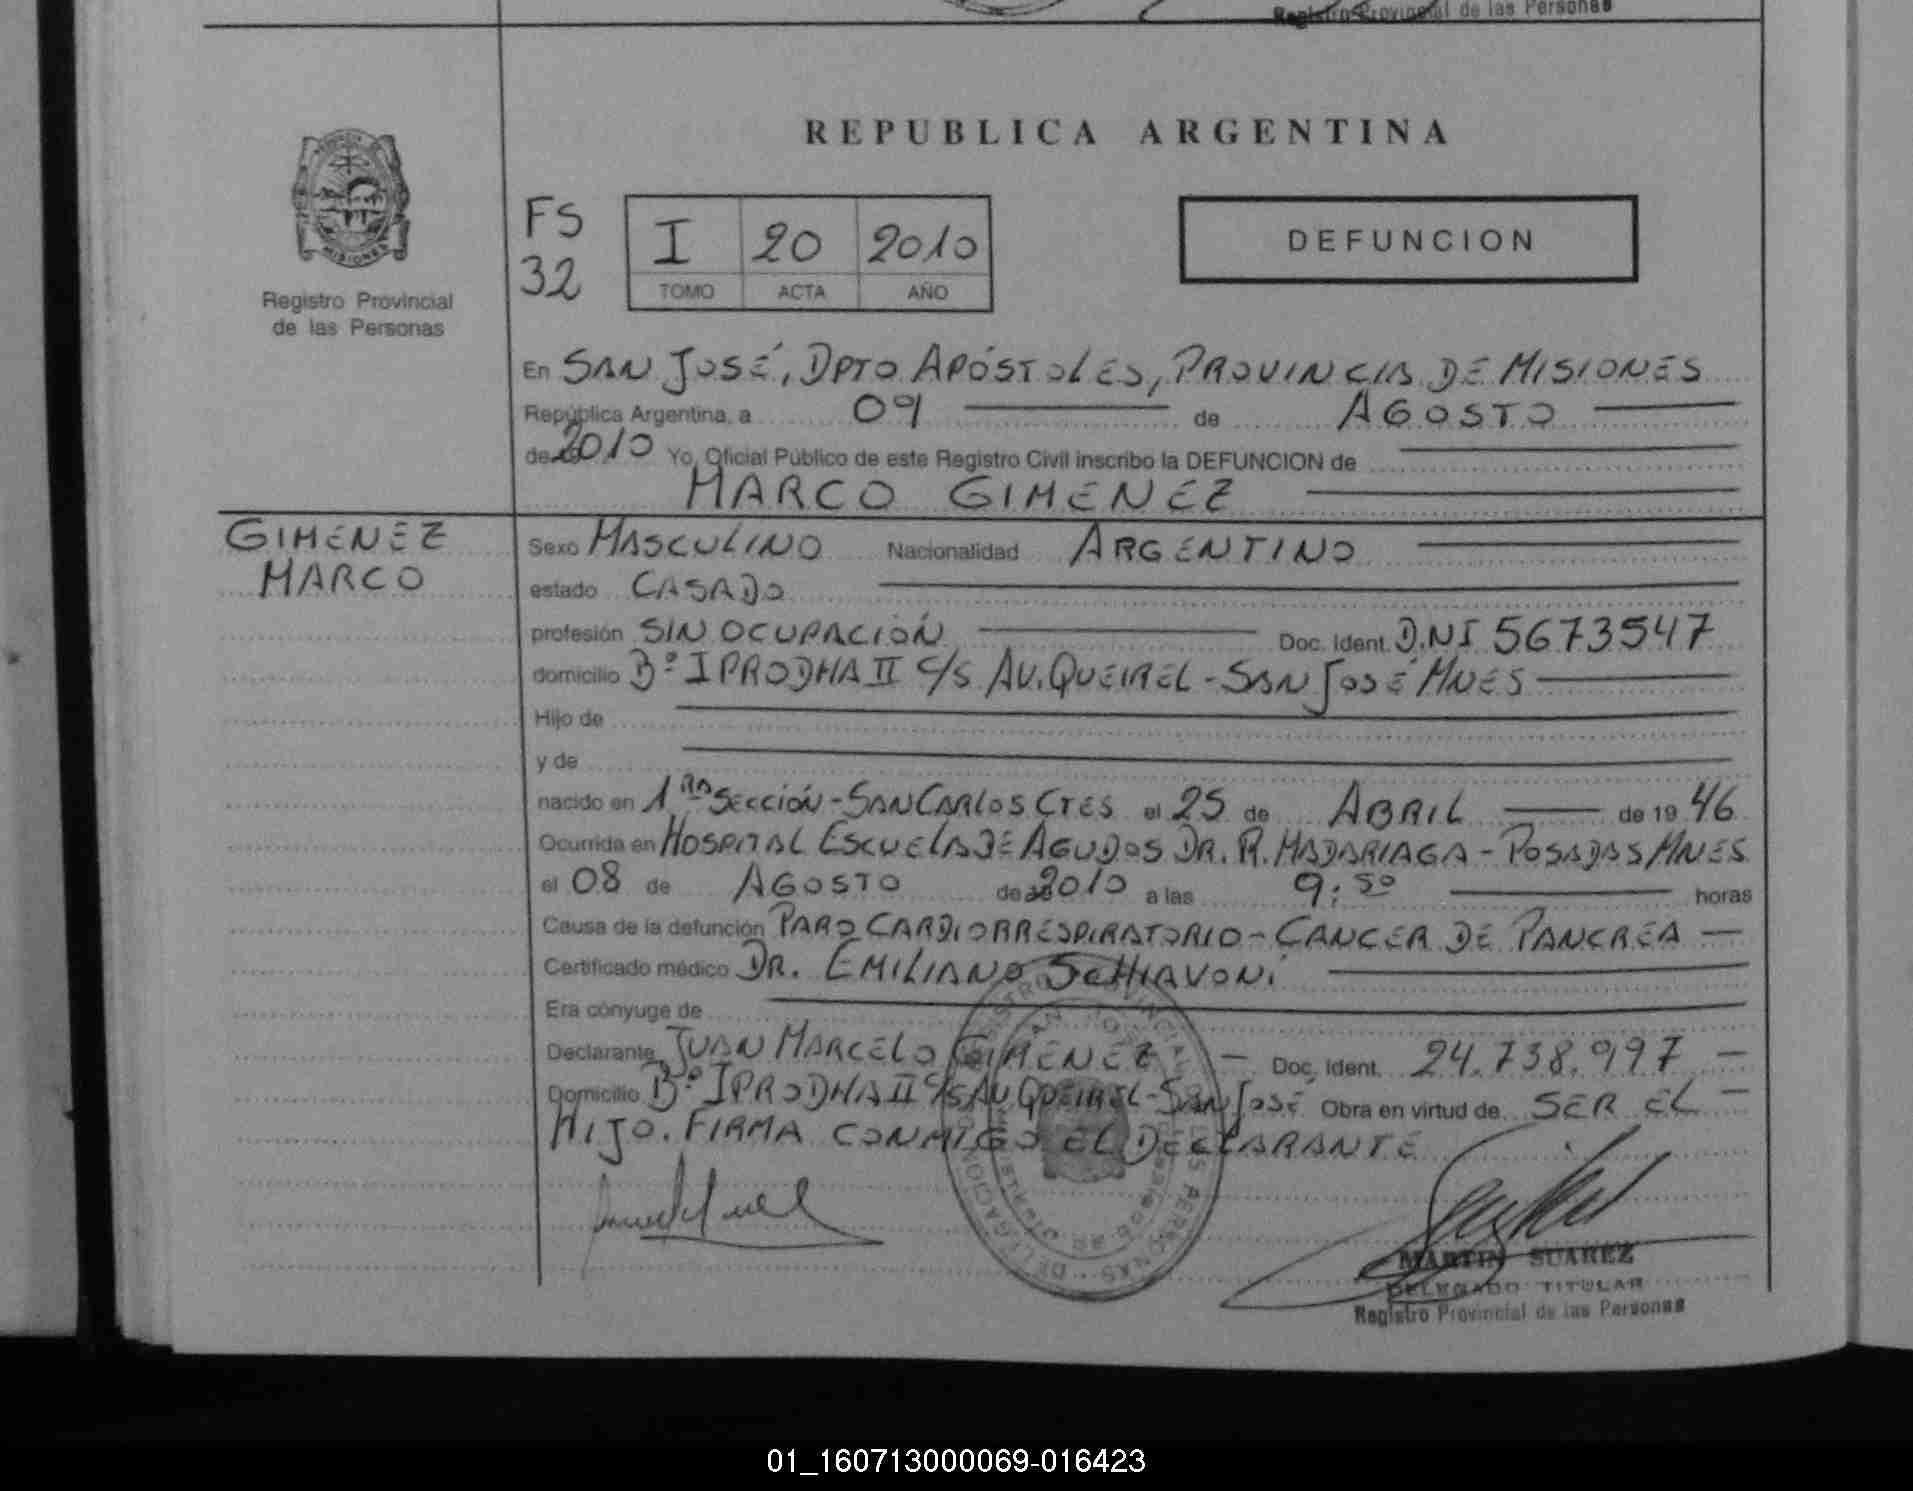 Registro Provincial de las Personas
REPUBLICA ARGENTINA
MISIONES
Registro Provincial
de las Personas
FS
32
I 20 2010
TOMO ACTA AÑO
DEFUNCION
En SAN JOSÉ, DPTO APÓSTOLES, PROVINCIA DE MISIONES
República Argentina, a 09 de AGOSTO
de 2010 Yo, Oficial Público de este Registro Civil inscribo la DEFUNCION de
MARCO GIMENEZ
GIMENEZ
MARCO
Sexo MASCULINO Nacionalidad ARGENTINO
estado CASADO
profesión SIN OCUPACIÓN Doc. Ident. D.NI 5673547
domicilio Bº IPRODHA II C/S AV. QUEIREL - SAN JOSÉ MNES
Hijo de
y de
nacido en 1RA SECCIÓN - SAN CARLOS CTES el 25 de ABRIL de 19 46
Ocurrida en HOSPITAL ESCUELA DE AGUDOS DR. R. MADARIAGA - POSADAS MNES
el 08 de AGOSTO de 2010 a las 9:50 horas
Causa de la defunción PARO CARDIORRESPIRATORIO - CANCER DE PANCREA
Certificado médico DR. EMILIANO SCHIAVONI
Era cónyuge de
Declarante JUAN MARCELO GIMENEZ Doc. Ident. 24.738.997
Domicilio Bº IPRODHA II C/S AV QUEIREL - SAN JOSÉ Obra en virtud de SER EL
HIJO. FIRMA CONMIGO EL DECLARANTE
MARTIN SUAREZ
DELEGADO TITULAR
Registro Provincial de las Personas
01_160713000069-016423